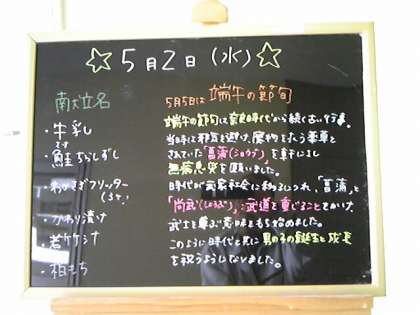 ☆5月2日(水)☆
献立名
・牛乳
・鮭ちらしずし
・わかさぎフリッター
・かわり漬け
・若竹汁
・柏もち
5月5日は 端午の節句
端午の節句は奈良時代から続く古い行事。
当時は邪気を避け、魔物を払う薬草と
されていた「菖蒲(ショウブ)」を軒にさし
無病息災を願いました。
時代が武家社会に移るにつれ、「菖蒲」と
「尚武(しょうぶ)」:武道を重じることをかけ、
武士を尊ぶ意味ももち始めました。
このように時代と共に男の子の誕生と成長
を祝うようになりました。